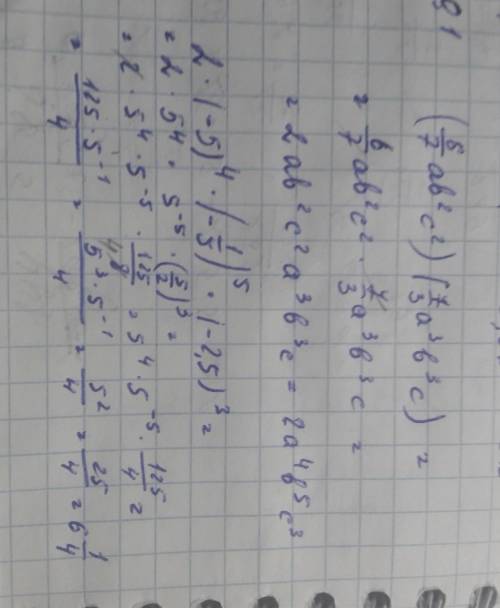 91
(6/7 ab²c²)(7/3 a³b³c) =
= 6/7 ab²c² · 7/3 a³b³c =
= 2ab²c²a³b³c = 2a⁴b⁵c³
2 · (-5)⁴ · (-1/5)⁵ · (-2,5)³ =
= 2 · 5⁴ · 5⁻⁵ · (5/2)³ =
= 2 · 5⁴ · 5⁻⁵ · 125/8 4 = 5⁴ · 5⁻⁵ · 125/4 =
= 125 · 5⁻¹/4 = 5³ · 5⁻¹/4 = 5²/4 = 25/4 = 6 1/4